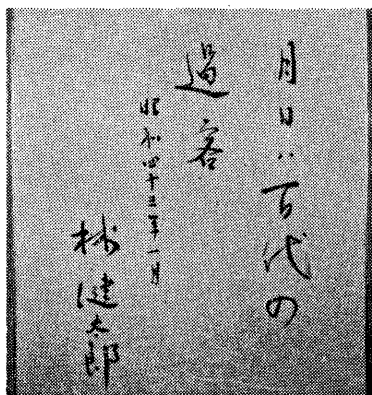 月日ハ百代の
過客
昭和四十三年一月
林健太郎